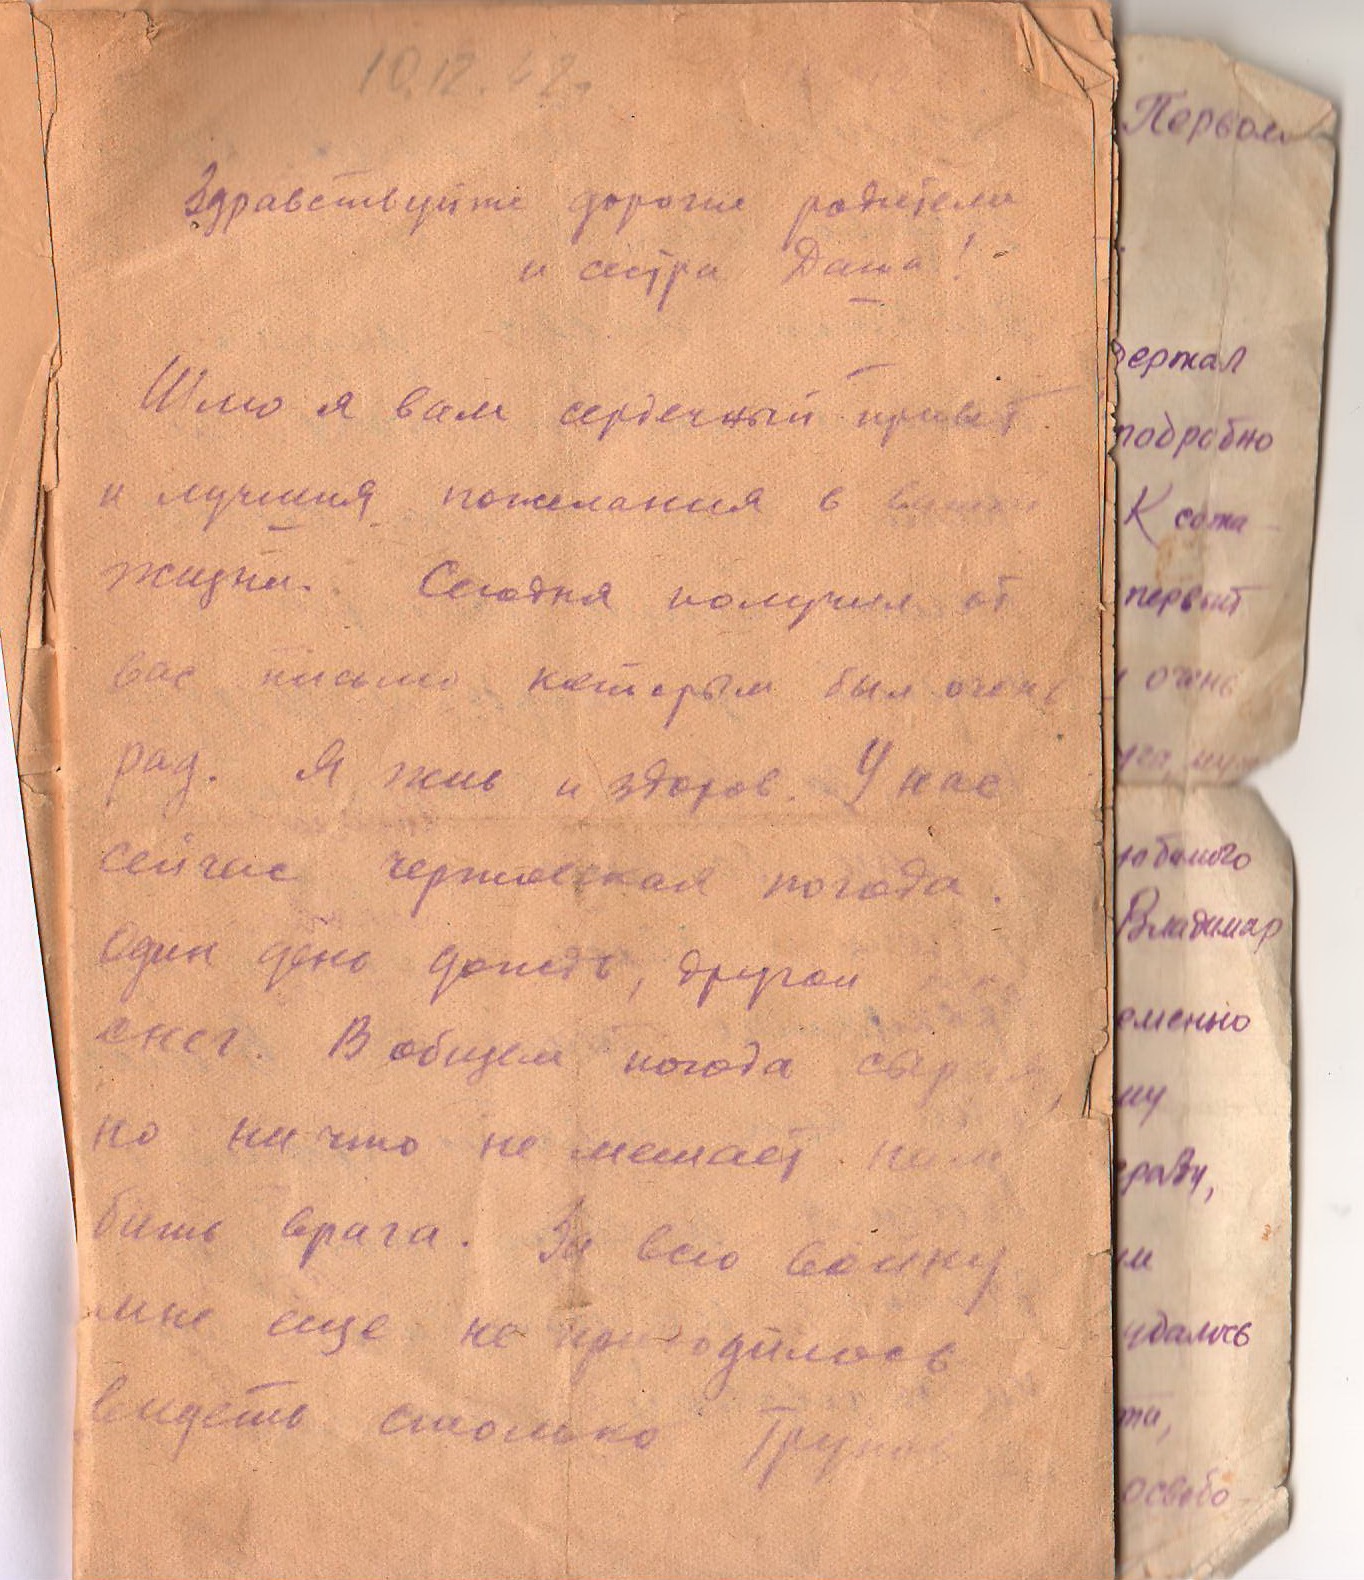 10.12.42г.
Здравствуйте дорогие родители
и сестра Даша!
Шлю я вам сердечный привет
и лучшия пожелания в вашей
жизни. Сегодня получил от
вас письмо которым был очень
рад. Я жив и здоров. У нас
сейчас чертовская погода.
Один день дождь, другой
снег. В общем погода сырая,
но ни что не мешает нам
бить врага. За всю войну
мне еще не приходилось
видеть столько трупов
Первом
держал
подробно
К сожа-
первый
очень
любимого
Владимир
еменно
му
удалось
та,
освобо-